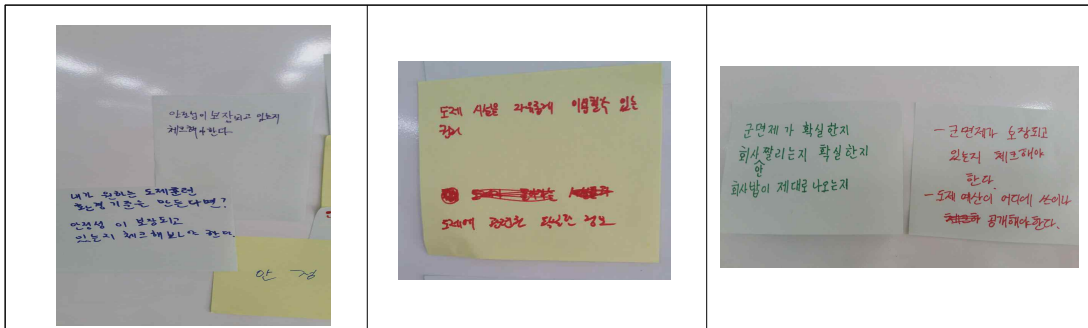 안전성이 보장되고 있는지
체크해야한다
내가 원하는 도제훈련
환경 기준을 만든다면?
안정성이 보장되고
있는지 체크해보아야 한다.
안정
도제 시설을 자유롭게 이용할 수 있는
권리
도제에 관련된 확실한 정보
군면제가 확실한지
회사 안 짤리는지 확실한지
회사밥이 제대로 나오는지
- 군면제가 보장되고
있는지 체크해야
한다.
- 도제 예산이 어디에 쓰이나
공개해야한다.